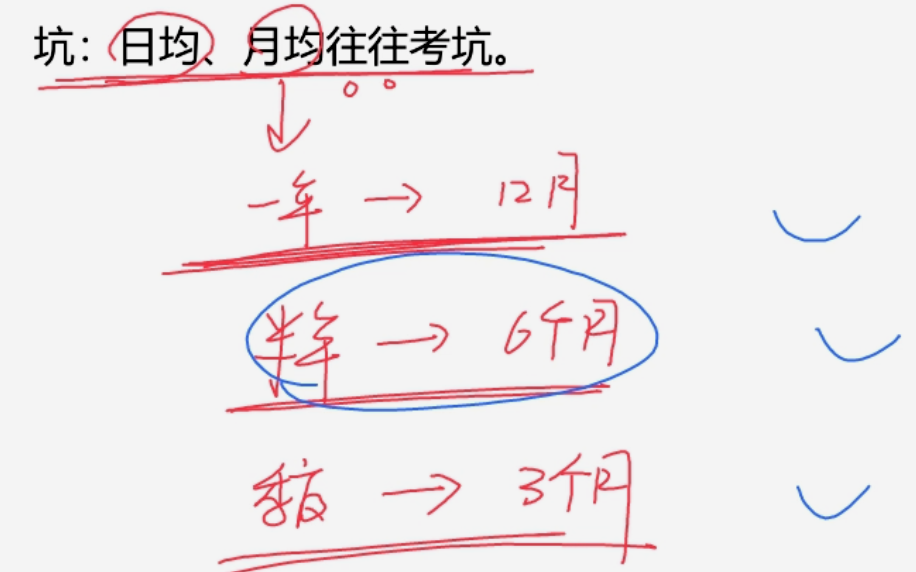 坑：日均、月均往往考坑。
一年 → 12月
半年 → 6个月
季度 → 3个月